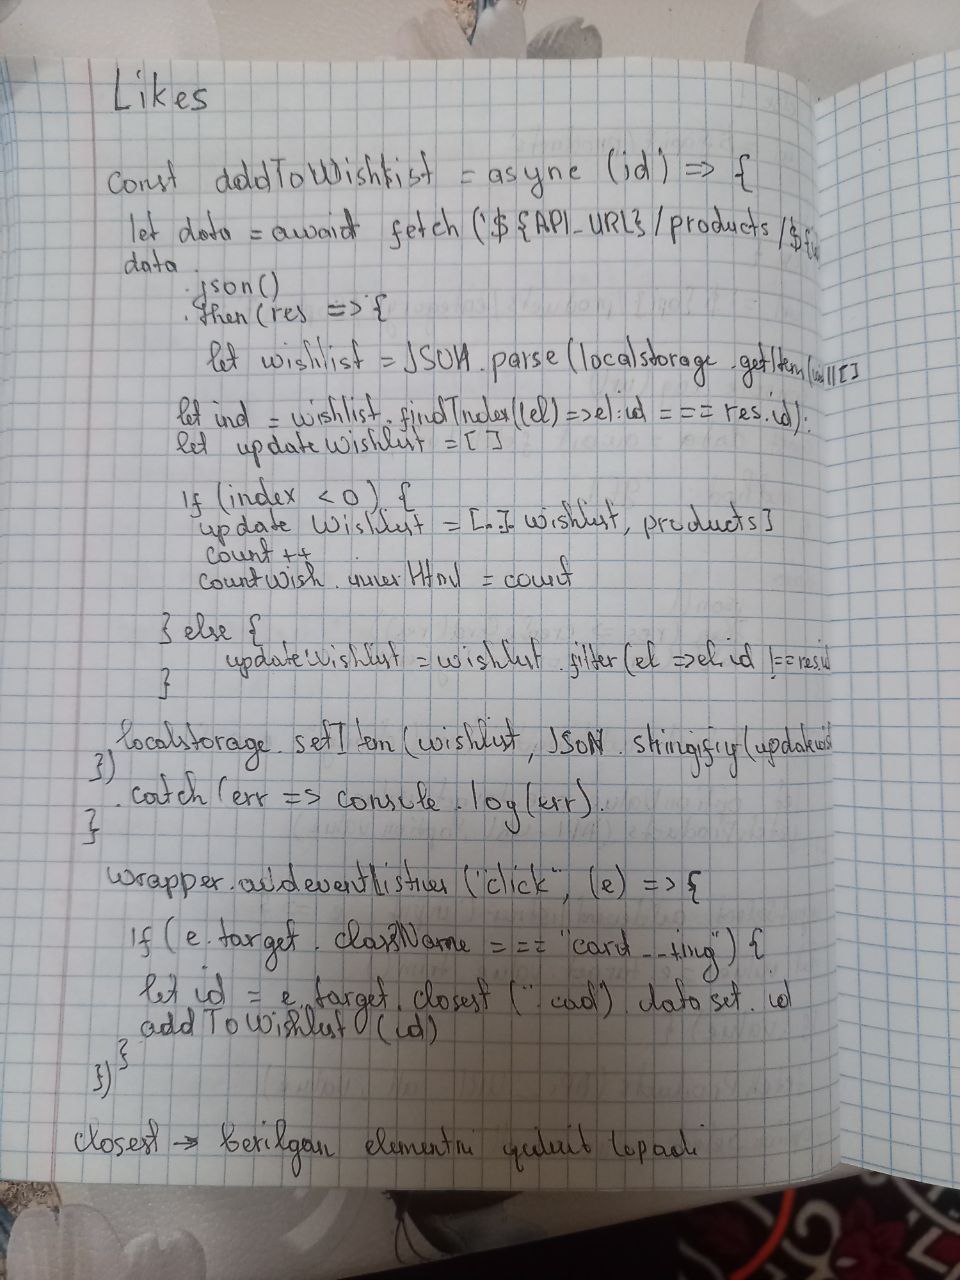 Likes
const addToWishlist = async (id) => {
let data = await fetch (`${API_URL}/products/${
data
.json()
.then(res => {
let wishlist = JSON.parse(localstorage.getItem( ||[]
let ind = wishlist.findIndex((el) => el.id === res.id);
let updateWishlist = []
if (index < 0) {
update Wishlist = [...] wishlist, products]
count ++
countWish.innerHtml = count
} else {
updateWishlist = wishlist.filter(el => el.id !== res.id
}
localstorage.setItem(wishlist, JSON.stringifiy(updatewis
})
.catch(err => console.log(err).
}
wrapper.addeventlistiner ("click", (e) => {
if (e.target.className === "card--img") {
let id = e.target.closest (".cad) dataset.id
addToWishlist (id)
}
})
closest → berilgan elementni qidirib topadi